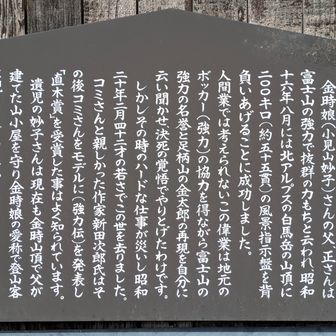 金時娘の遺児妙子さんの父、正作さんは
富士山の強力で抜群の力もちと云われ、昭和
十六年八月には北アルプスの白馬岳の山頂に
二〇〇キロ(約五十五貫)の風景指示盤を背
負いあげることに成功しました。
人間業では考えられないこの偉業は地元の
ボッカー(強力)の協力を得ながら富士山の
強力の名誉と足柄山の金太郎の再現を自分に
云い聞かせ、決死の覚悟でやりとげたわけです。
しかしその時のハードな仕事が災いし昭和
二十年二月四十二才の若さでこの世を去りました。
コミさんと親しかった作家新田次郎氏はそ
の後コミさんをモデルに(強力伝)を発表し
「直木賞」を受賞した事はよく知られています。
遺児の妙子さんは現在も金時山頂で父が
建てた山小屋を守り金時娘の愛称で登山客